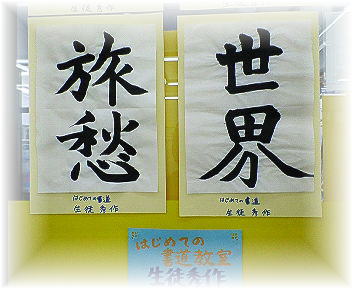 生徒秀作
旅愁
はじめての書道
生徒秀作
世界
はじめての書道
生徒秀作
はじめての
書道教室
生徒秀作